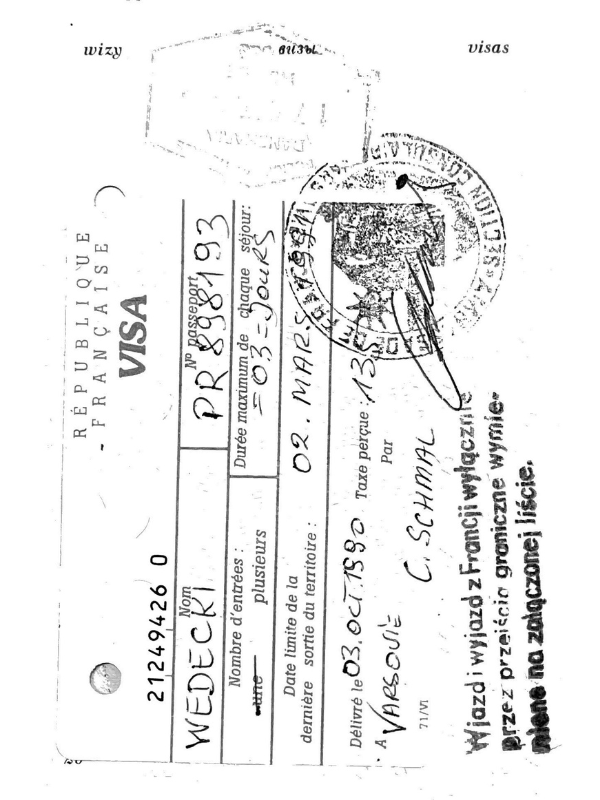 wizy визы visas
RÉPUBLIQUE
FRANÇAISE
VISA
21249426 0
Nom
WEDECKI
Nº passeport
PR 898193
Nombre d'entrées :
une plusieurs
Durée maximum de chaque séjour:
=03=JOURS
Date limite de la
dernière sortie du territoire :
02. MARS 1991
Délivré le 03.OCT.1990 Taxe perçue :
A VARSOVIE Par
C. SCHMAL
71/VI
Wjazd i wyjazd z Francji wyłącznie
przez przejścia graniczne wymie-
nione na załączonej liście.